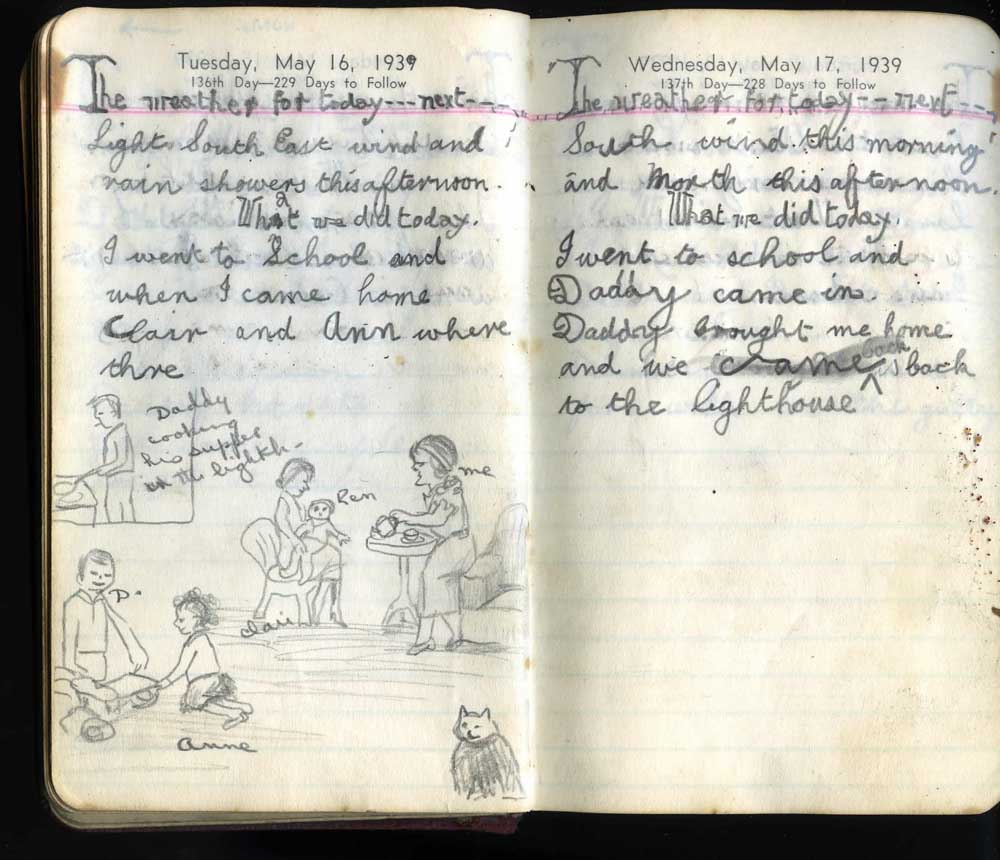 Tuesday, May 16, 1939
136th Day—229 Days to Follow
The weather for today---next--
Light South East wind and
rain showers this afternoon.
What we did today.
I went to School and
when I came home
Clair and Ann where
thre
Daddy
cooking
his supper
in the lighth-
me
Ren
D.
Clair
Anne
Wednesday, May 17, 1939
137th Day—228 Days to Follow
The weather for today--next--
South wind this morning
and North this afternoon.
What we did today.
I went to school and
Daddy came in.
Daddy brought me home
and we came back
to the lighthouse